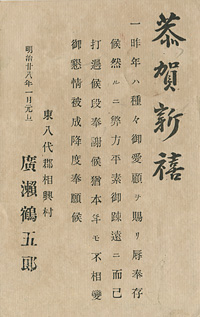 恭賀新禧
一昨年ハ種々御愛顧ヲ賜リ辱奉存
候然ルニ弊方平素御踈遠ニ而已
打過候段奉謝候猶本年モ不相變
御懇情被成降度奉願候
明治廿八年一月元旦
東八代郡相興村
廣瀬鶴五郎